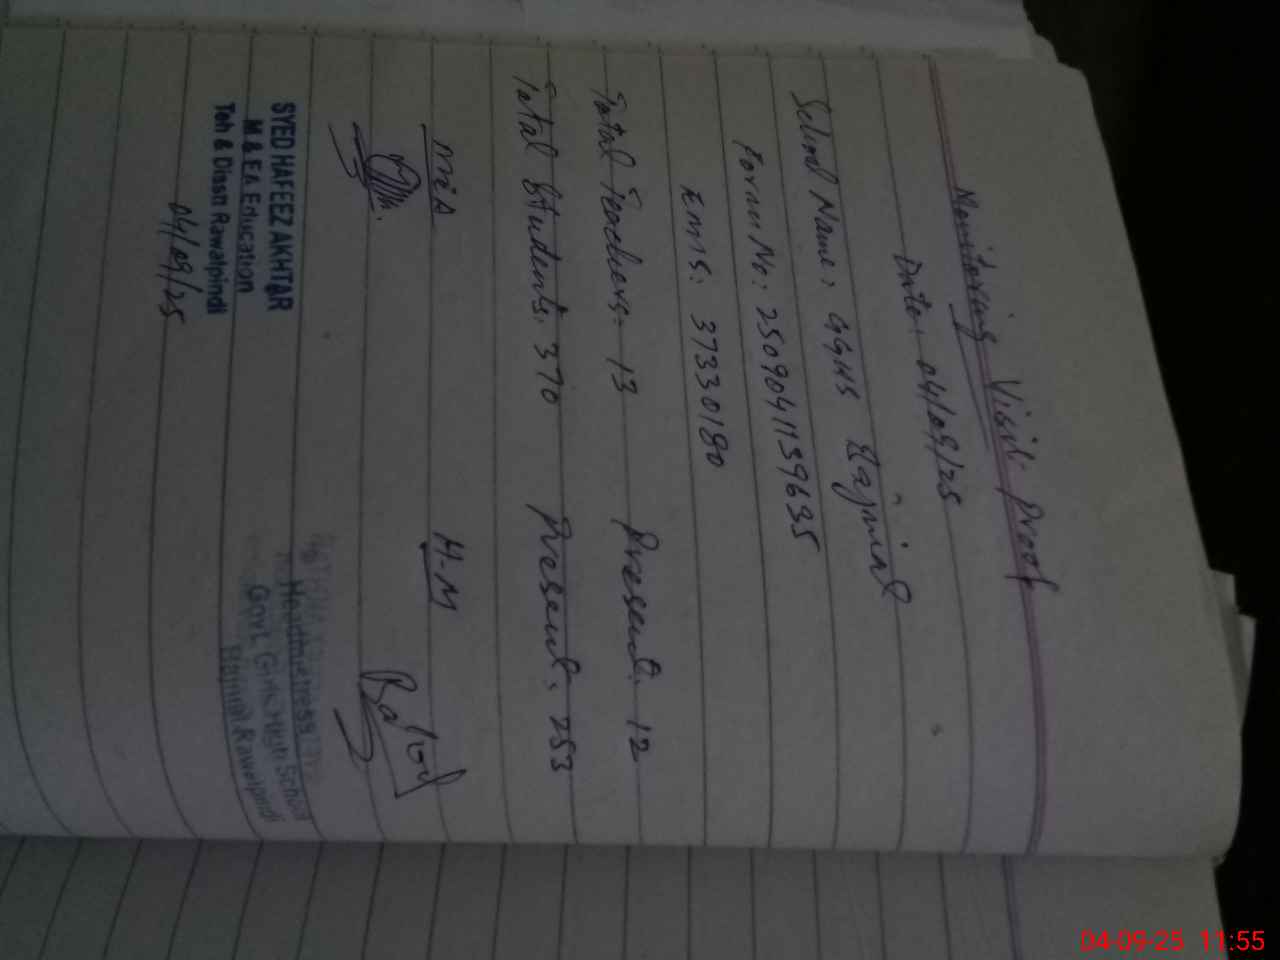 Monitoring Visit Proof
Date: 04/09/25
School Name: GGHS Hajial
Form No: 2509041139635
Emis: 37330180
Total Teachers= 13 Present: 12
Total Students: 370 Present: 253
MEA H-M
SYED HAFEEZ AKHTAR
M & E A Education
Teh & Disst Rawalpindi
04/09/25
Headmistress
Govt. Girls High School
Rawalpindi
04-09-25 11:55